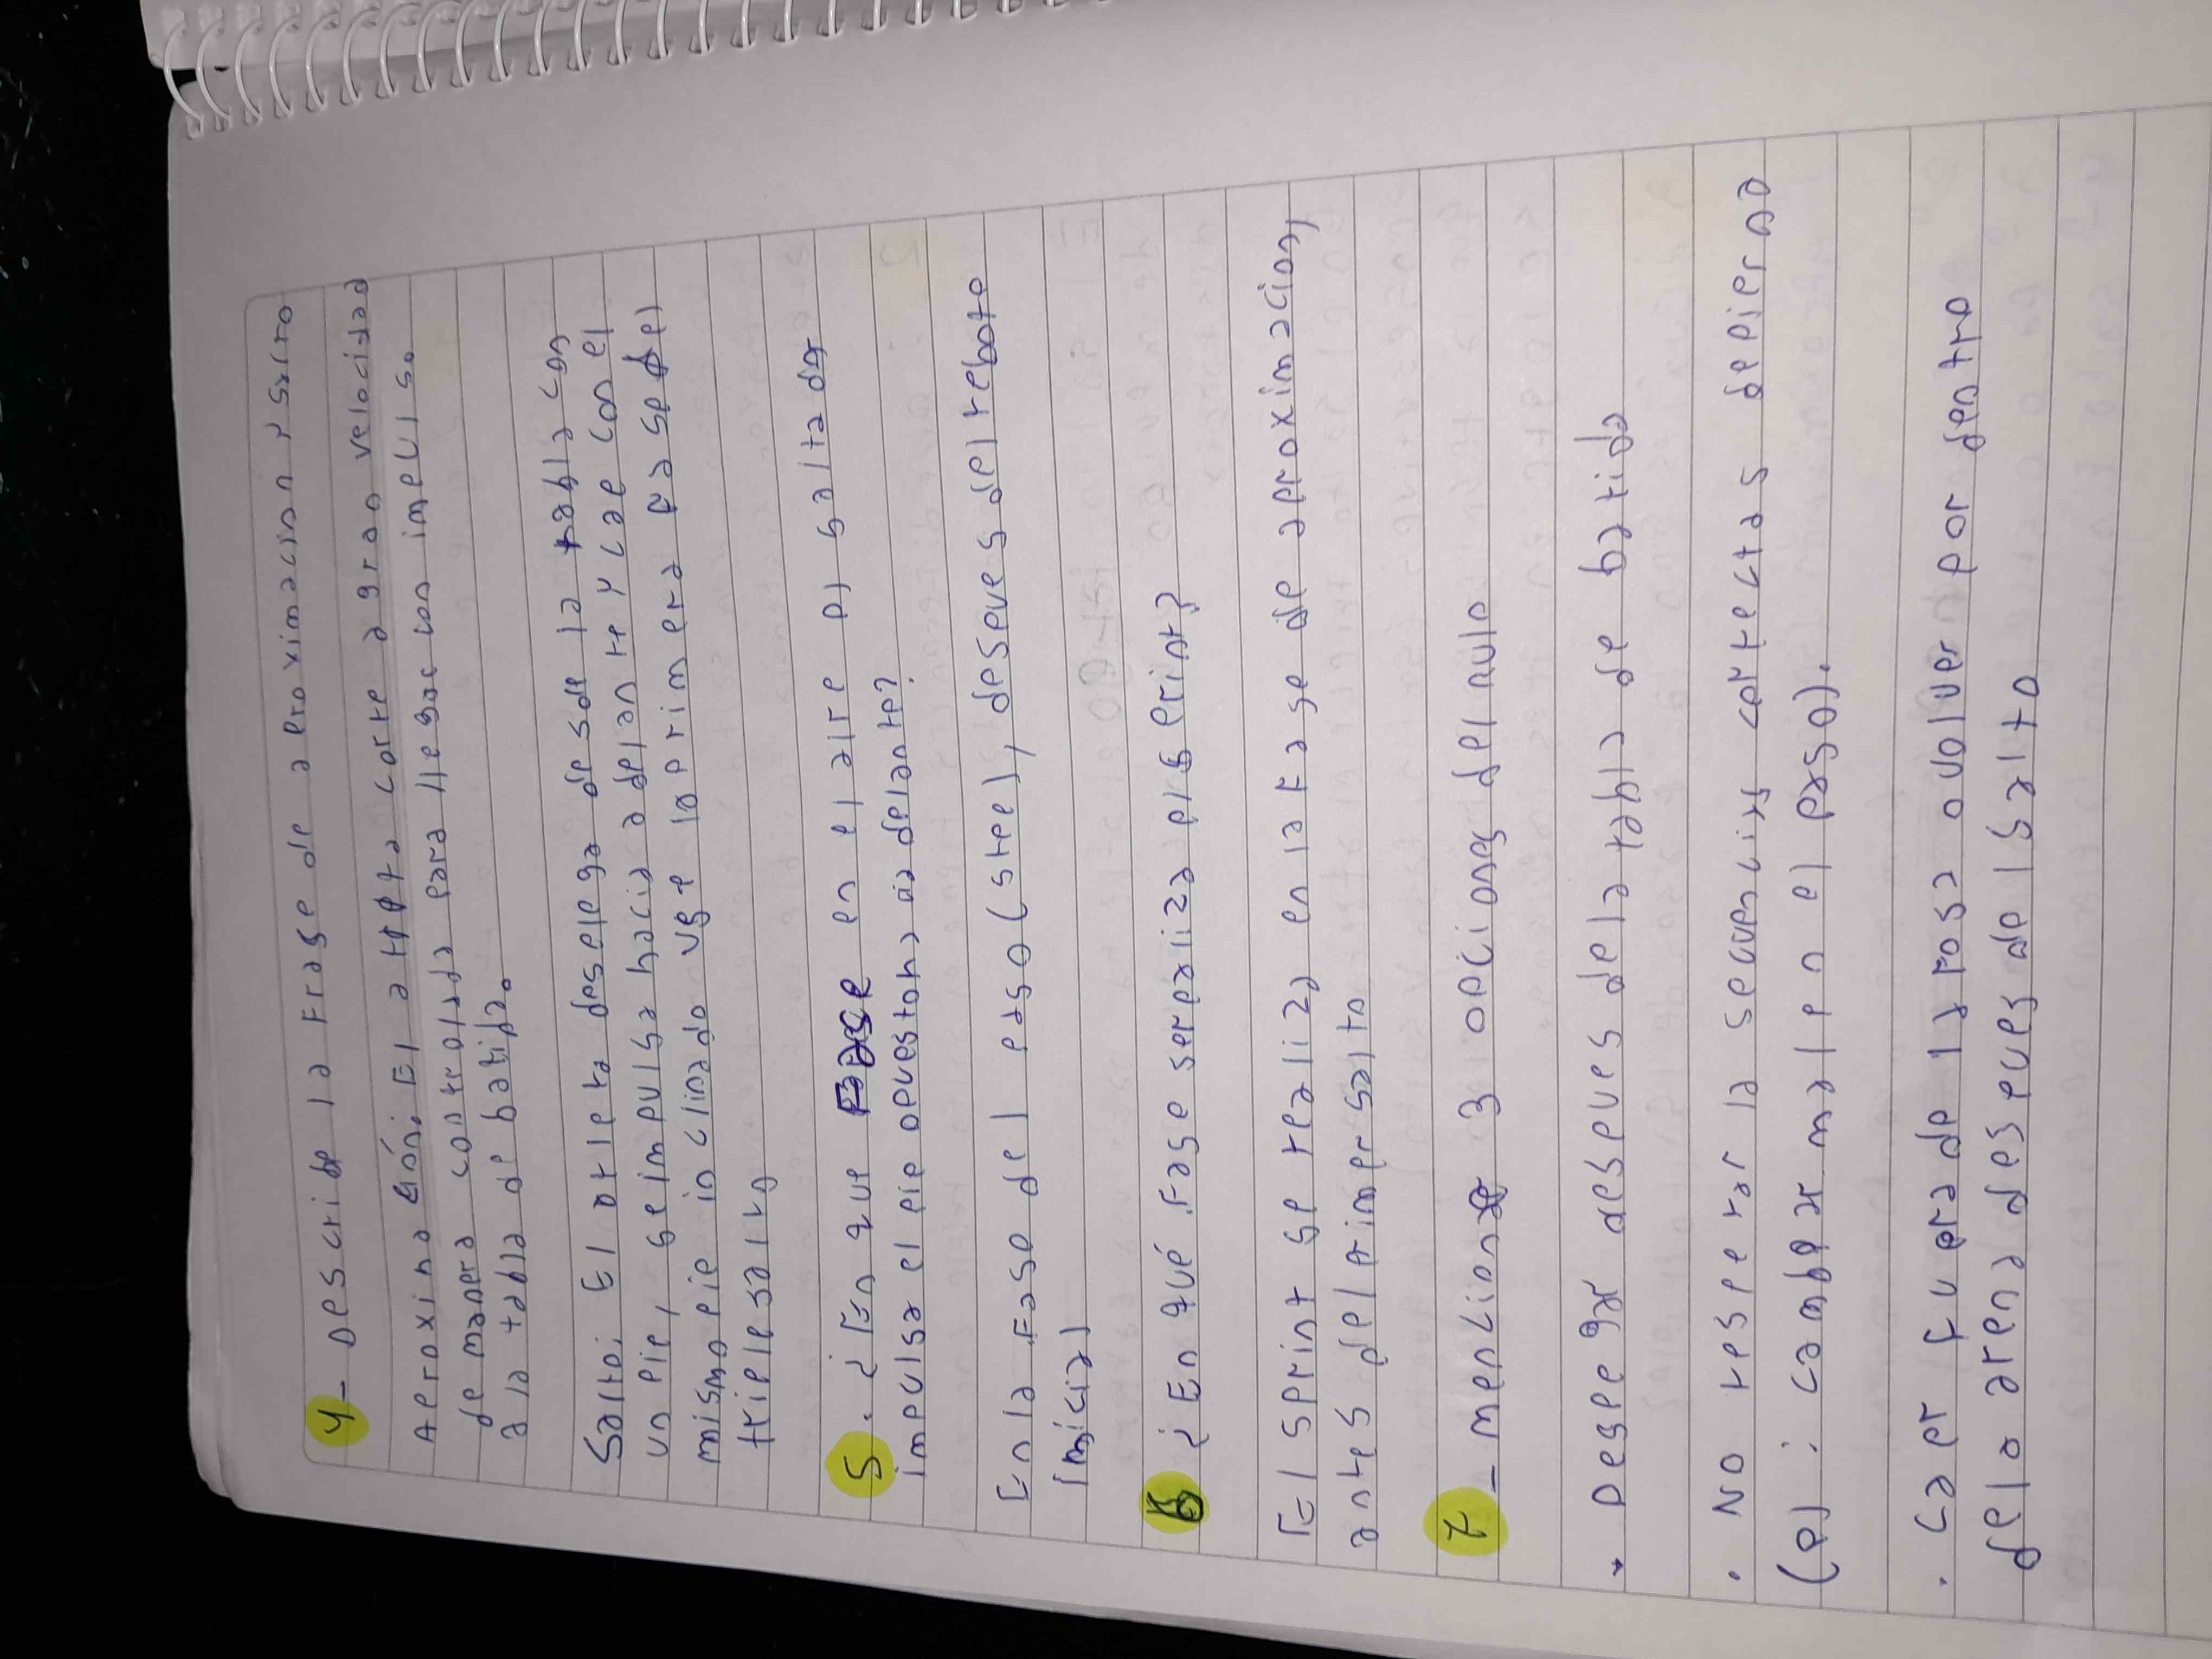 4- Describe la Frase de aproximacion y salto
Aproximación: El atleta corre a gran velocidad
de manera controlada para llegar con impulso
a la tabla de batida.
Salto: El atleta despega desde la tabla con
un pie, se impulsa hacia adelante y cae con el
mismo pie iniclinado la primera fase del
triple salto
5. ¿En que fase en el aire el saltador
impulsa el pie opuesto hacia adelante?
En la Fase del paso (step), despues del rebote
Inicial
6 ¿En qué fase se realiza el sprint?
El sprint se realiza en la fase de aproximación,
antes del primer salto
7- menciona 3 opciones del nulo
* Despegar despues de la tabla de batida
• No respetar la secuencia correcta de pies
(ej: cambiar mal en el paso).
• Caer fuera del foso o volver por dentro
del area despues del salto